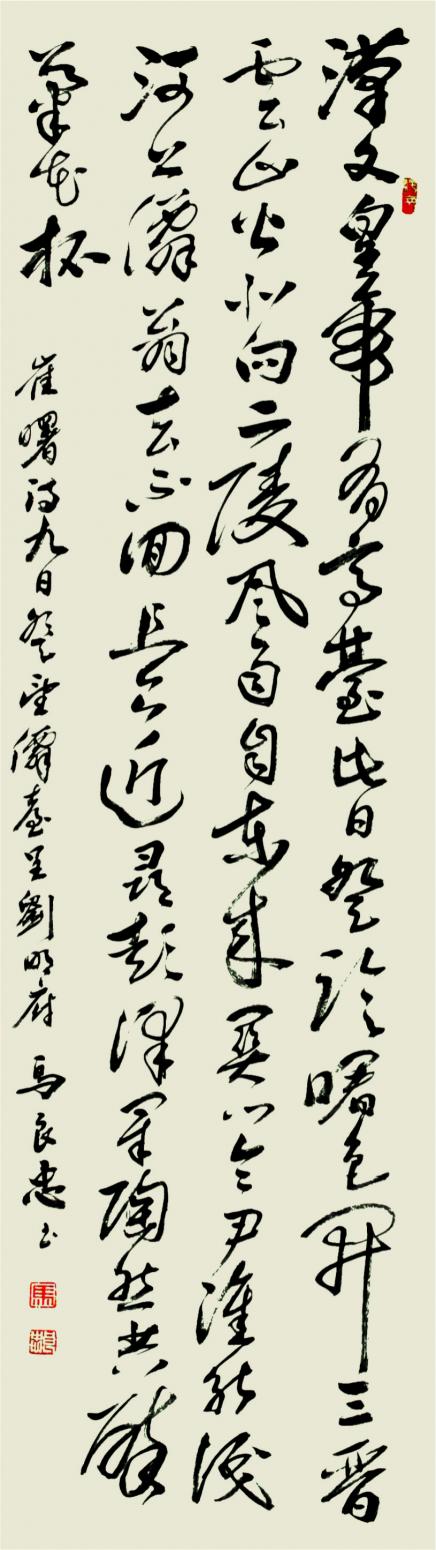 漢文皇帝有高臺此日登臨曙色開三晉
雲山皆北向二陵風雨自東來關門令尹誰能識
河上僊翁去不回且欲近尋彭澤宰陶然共醉
菊花杯 崔曙詩九日登望僊臺呈劉明府 馬良忠書